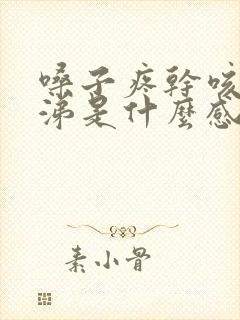 嗓子疼幹咳
涕是什麼感
素小骨